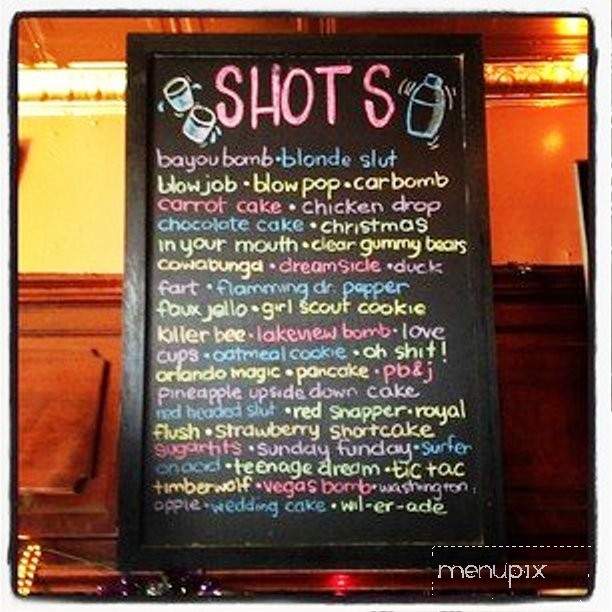 SHOTS
bayou bomb • blonde slut
blowjob • blow pop • car bomb
carrot cake • chicken drop
chocolate cake • christmas
in your mouth • clear gummy bears
cowabunga • dreamsicle • duck
fart • flamming dr. pepper
faux jello • girl scout cookie
killer bee • lakeview bomb • love
cups • oatmeal cookie • oh shit!
orlando magic • pancake • pb&j
pineapple upside down cake
red headed slut • red snapper • royal
flush • strawberry shortcake
sugartits • sunday funday • surfer
on acid • teenage dream • tic tac
timberwolf • vegas bomb • washington
apple • wedding cake • wil-er-ade
menupix